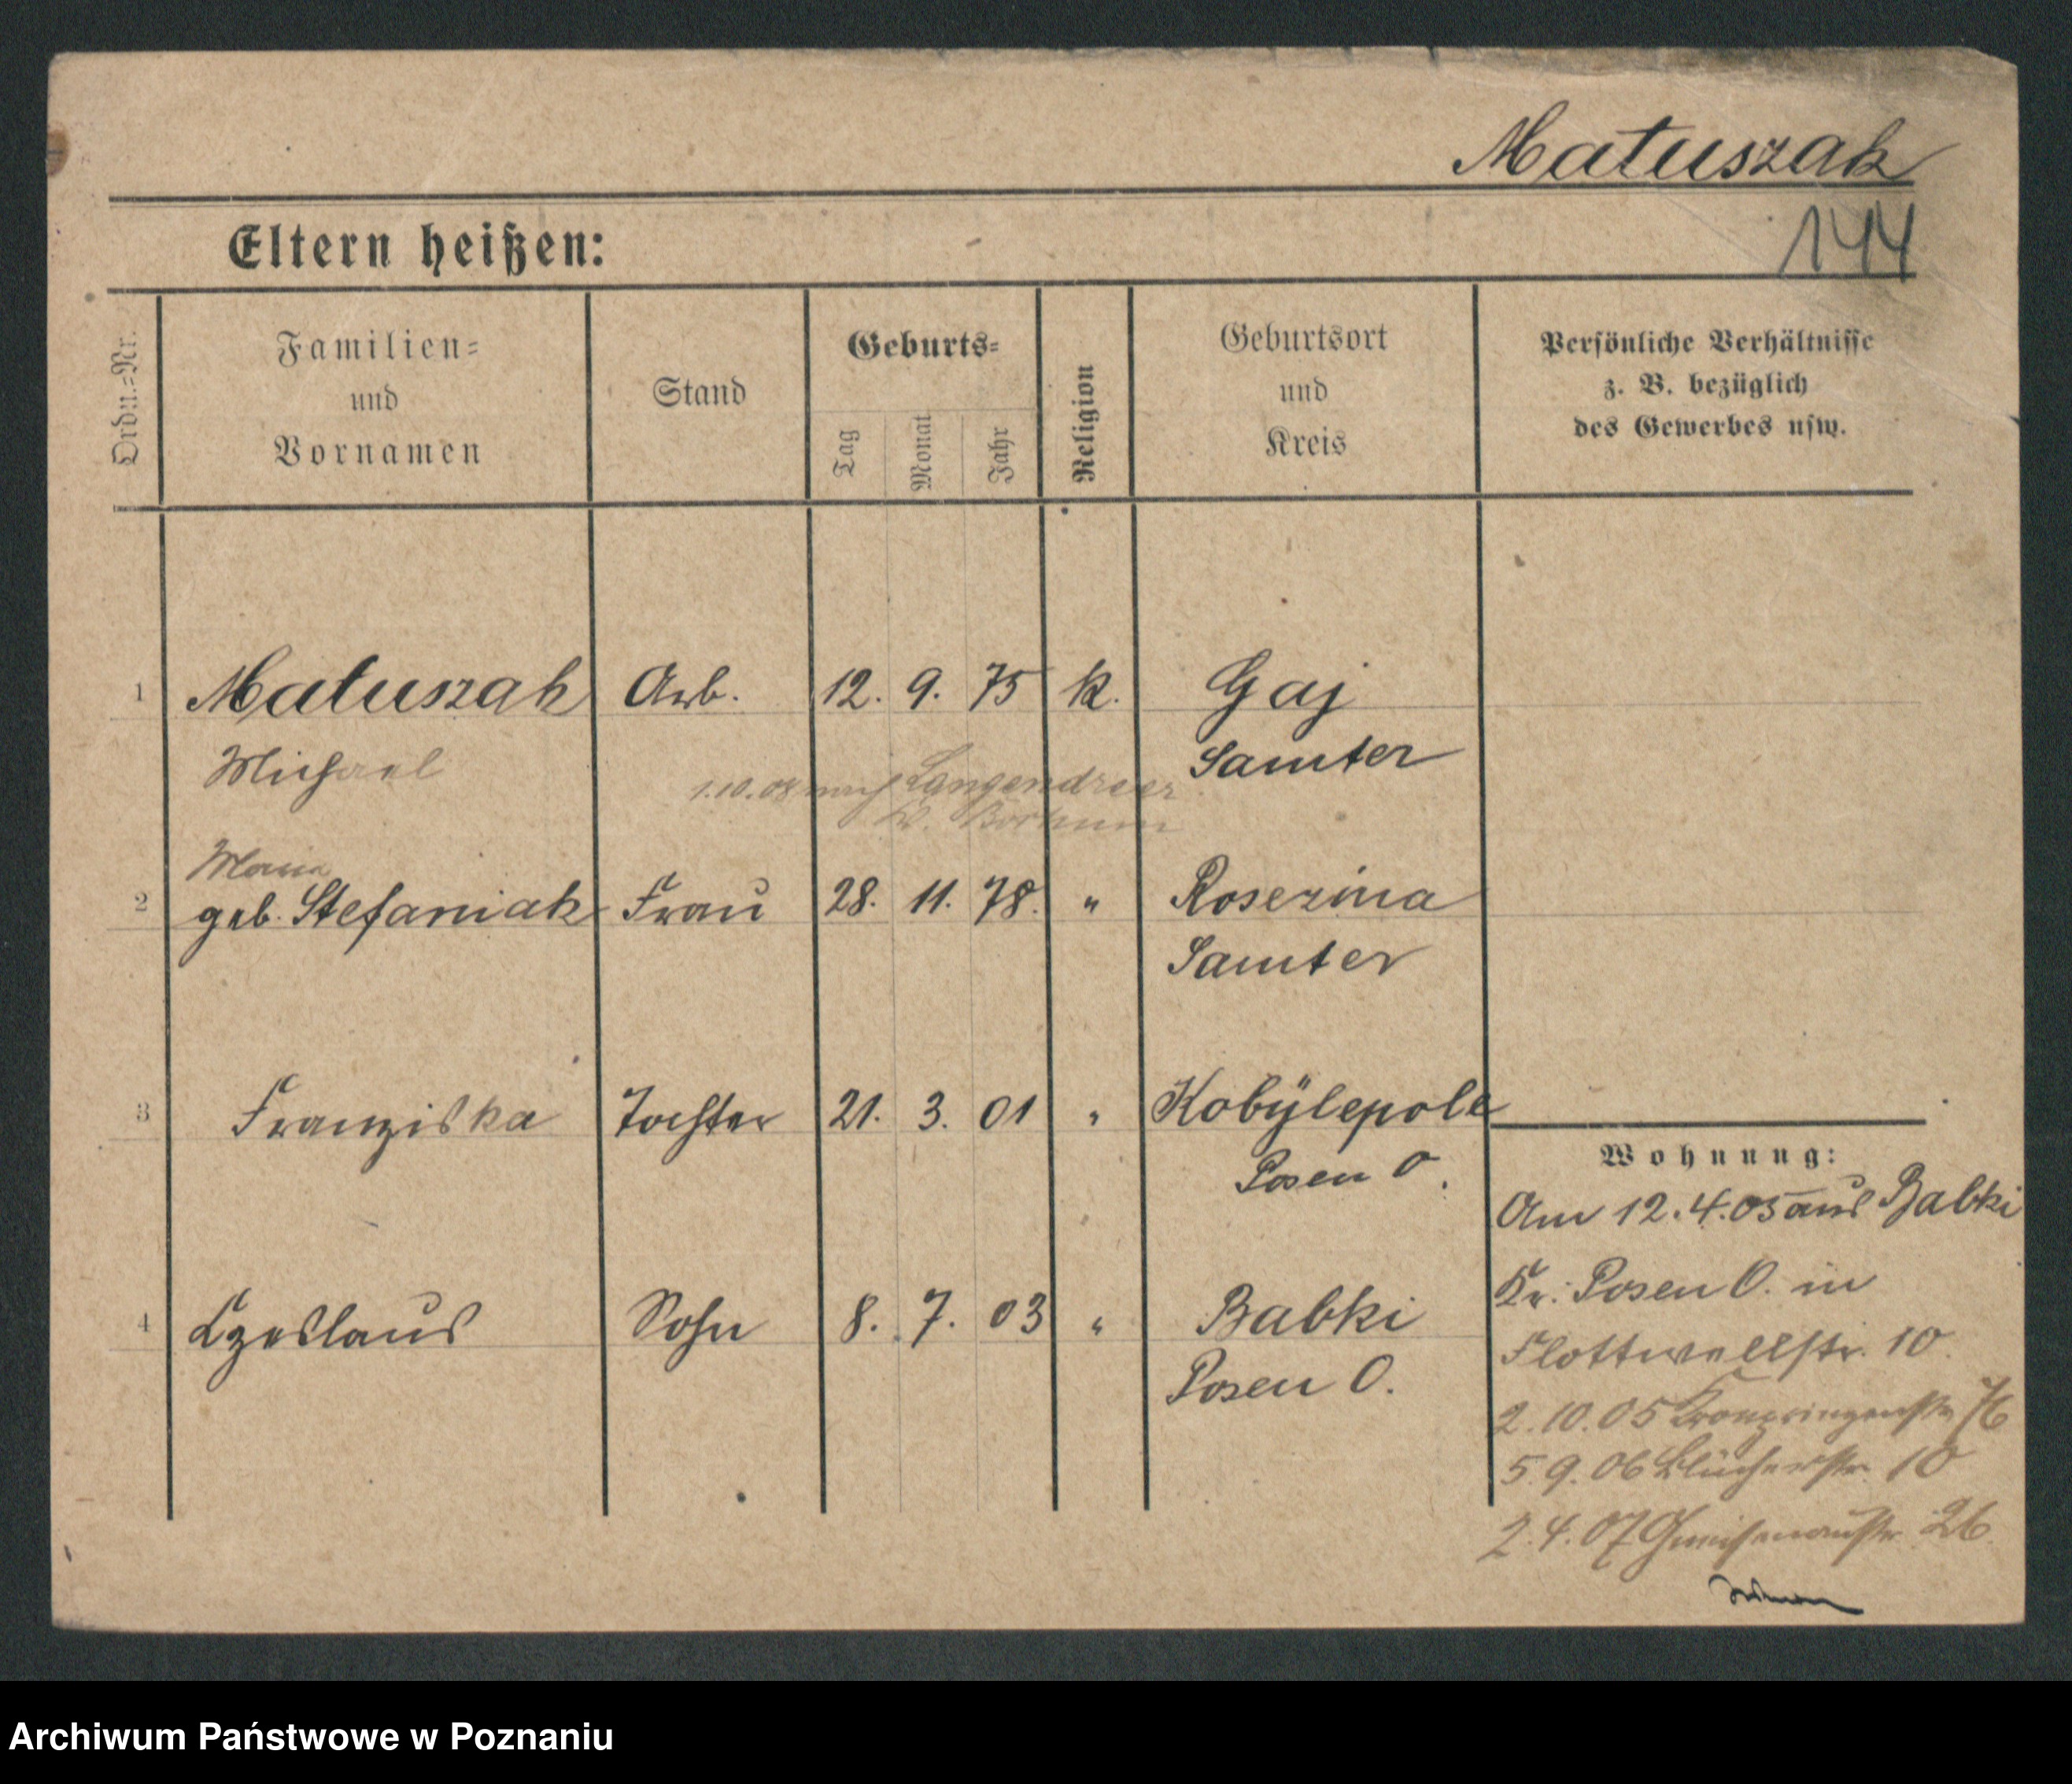 Matuszak
144
Eltern heißen:
Ordn.-Nr.
Familien-
und
Vornamen
Stand
Geburts-
Tag
Monat
Jahr
Religion
Geburtsort
und
Kreis
Persönliche Verhältnisse
z. B. bezüglich
des Gewerbes usw.
1 Matuszak Arb. 12. 9. 75 k. Gaj
Michael Samter
1.10.08 nach Langendreer
Bochum
Maria
2 geb. Stefaniak Frau 28. 11. 78. " Roserina
Samter
3 Franziska Tochter 21. 3. 01 " Kobylepole
Posen O.
4 Czeslaus Sohn 8. 7. 03 " Babki
Posen O.
Wohnung:
Am 12.4.05 aus Babki
Kr. Posen O. in
Flottwellstr. 10
2.10.05 Kronprinzenstr. 76
5.9.06 Blücherstr. 10
2.4.07 Gneisenaustr. 26
Archiwum Państwowe w Poznaniu